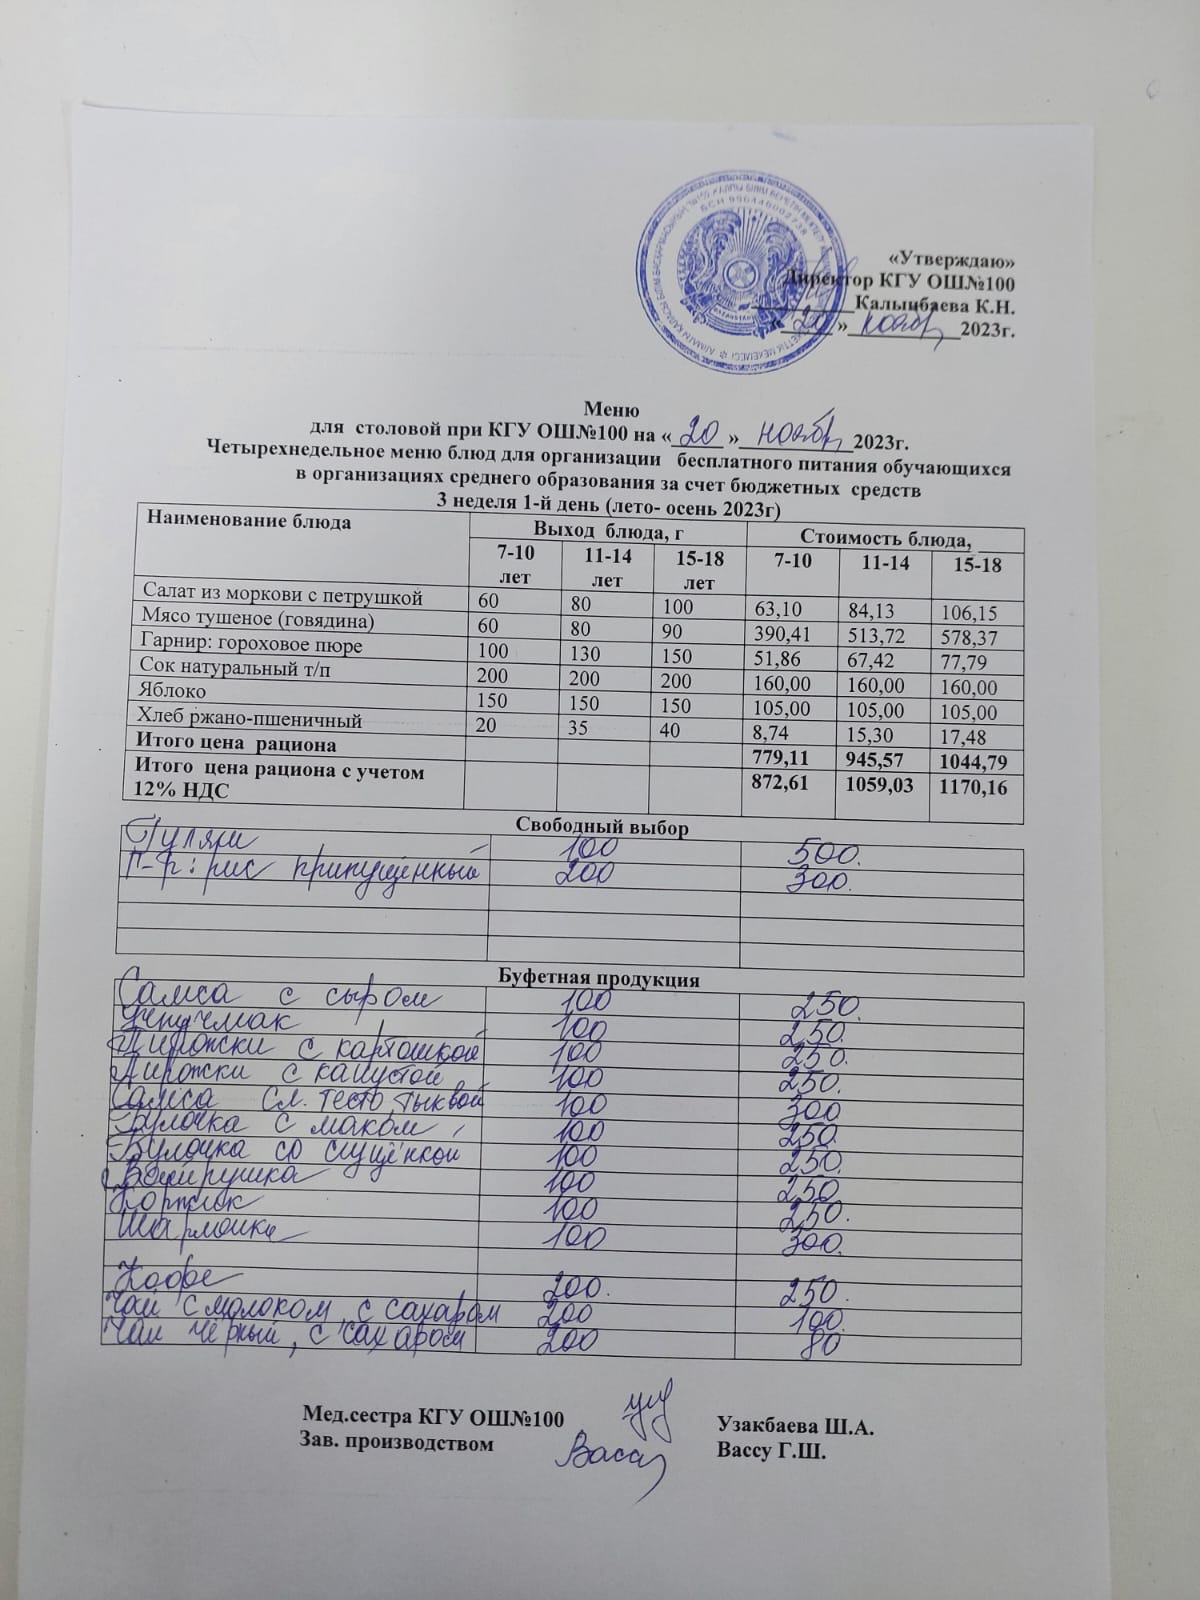 «Утверждаю»
Директор КГУ ОШ№100
__________Калынбаева К.Н.
«20»ноябр2023г.
Меню
для столовой при КГУ ОШ№100 на «20» ноябр 2023г.
Четырехнедельное меню блюд для организации бесплатного питания обучающихся
в организациях среднего образования за счет бюджетных средств
3 неделя 1-й день (лето- осень 2023г)
Наименование блюда Выход блюда, г Стоимость блюда, __
7-10 лет 11-14 лет 15-18 лет 7-10 11-14 15-18
Салат из моркови с петрушкой 60 80 100 63,10 84,13 106,15
Мясо тушеное (говядина) 60 80 90 390,41 513,72 578,37
Гарнир: гороховое пюре 100 130 150 51,86 67,42 77,79
Сок натуральный т/п 200 200 200 160,00 160,00 160,00
Яблоко 150 150 150 105,00 105,00 105,00
Хлеб ржано-пшеничный 20 35 40 8,74 15,30 17,48
Итого цена рациона 779,11 945,57 1044,79
Итого цена рациона с учетом 12% НДС 872,61 1059,03 1170,16
Свободный выбор
Гуляш 100 500.
Г-р: рис припущенный 200 300.
Буфетная продукция
Самса с сыром 100 250.
Учпучмак 100 250.
Пирожки с картошкой 100 250.
Пирожки с капустой 100 250.
Самса сл. тесто тыквой 100 300
Булочка с маком 100 250.
Булочка со сгущёнкой 100 250.
Ватрушка 100 250
Коржик 100 250.
100 300.
Кофе 200. 250.
Чай с молоком, с сахаром 200 100.
Чай чёрный, с сахаром 200 80
Мед.сестра КГУ ОШ№100 Узакбаева Ш.А.
Зав. производством Вассу Г.Ш.